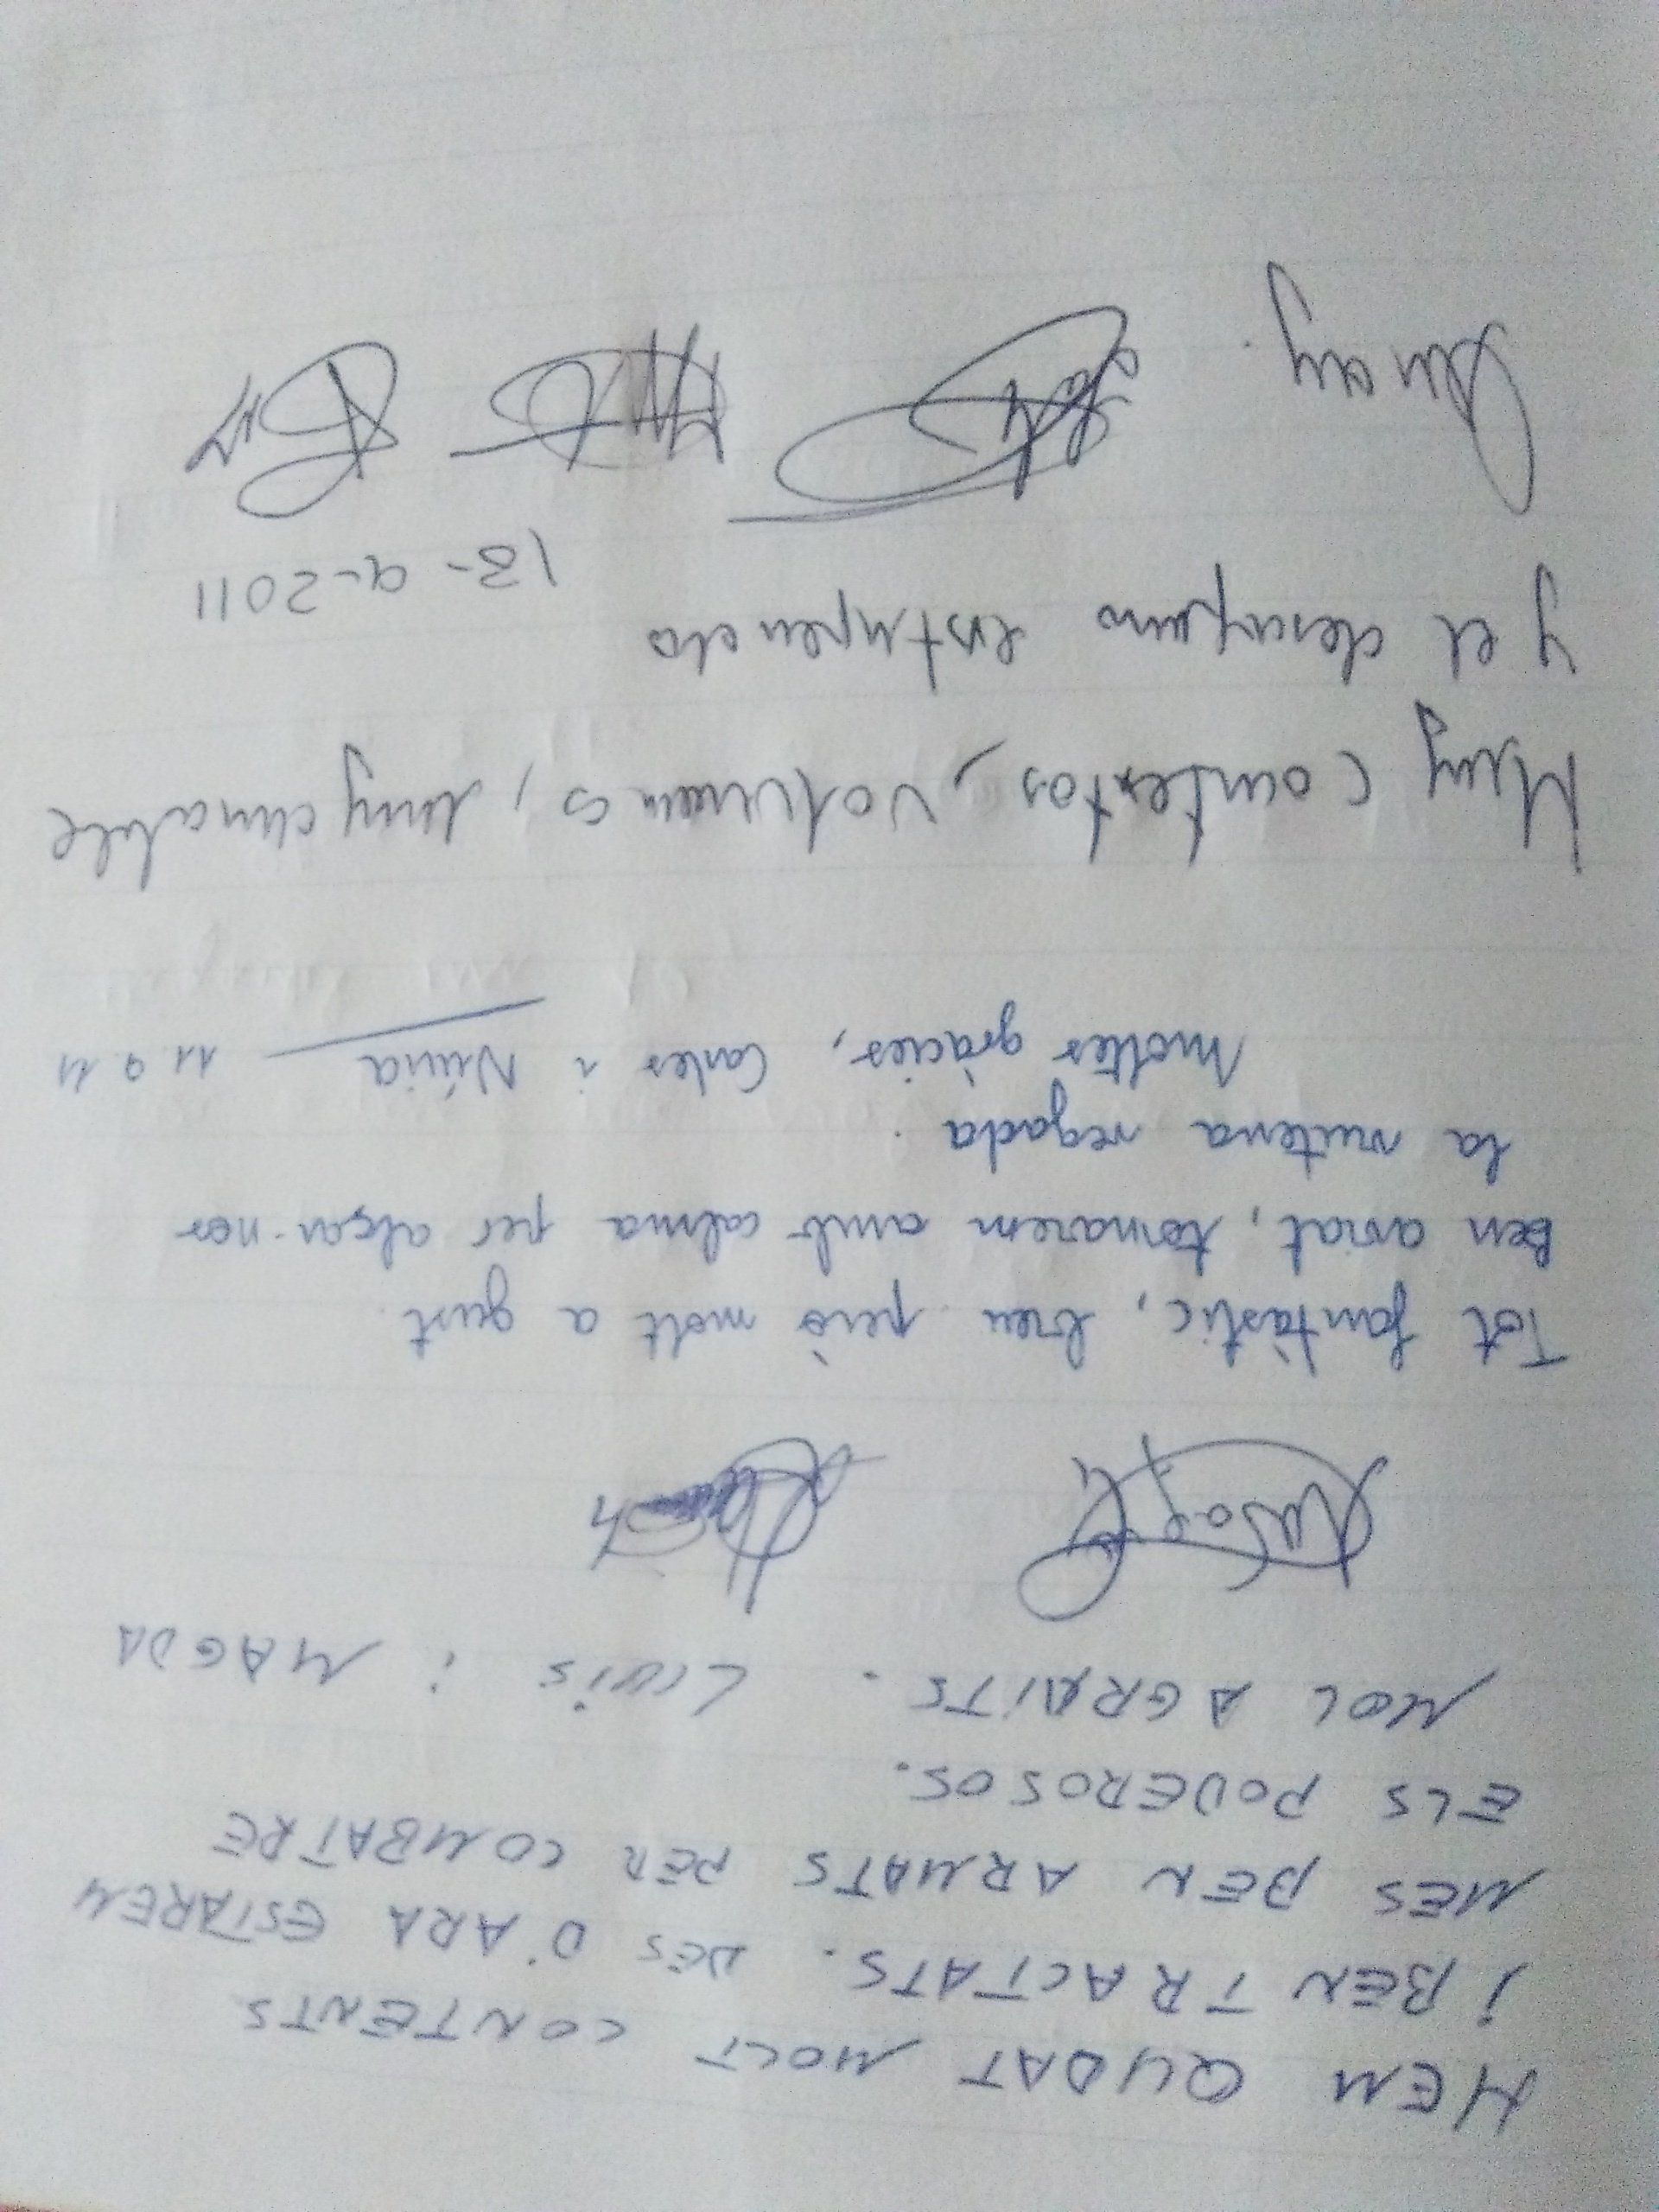 HEM QUDAT MOLT CONTENTS
i BEN TRACTATS. DES D'ARA ESTAREM
MES BEN ARMATS PER COMBATRE
ELS PODEROSOS.
MOL AGRAITS. LLUÍS i MAGDA
Tot fantàstic, breu però molt a gust.
Ben aviat, tornarem amb calma per alçar-nos
la vuitena vegada.
Moltes gràcies, Carles i Núria 11.9.11
Muy contentos, volveremos, muy amable
y el desayuno estupendo
13-9-2011